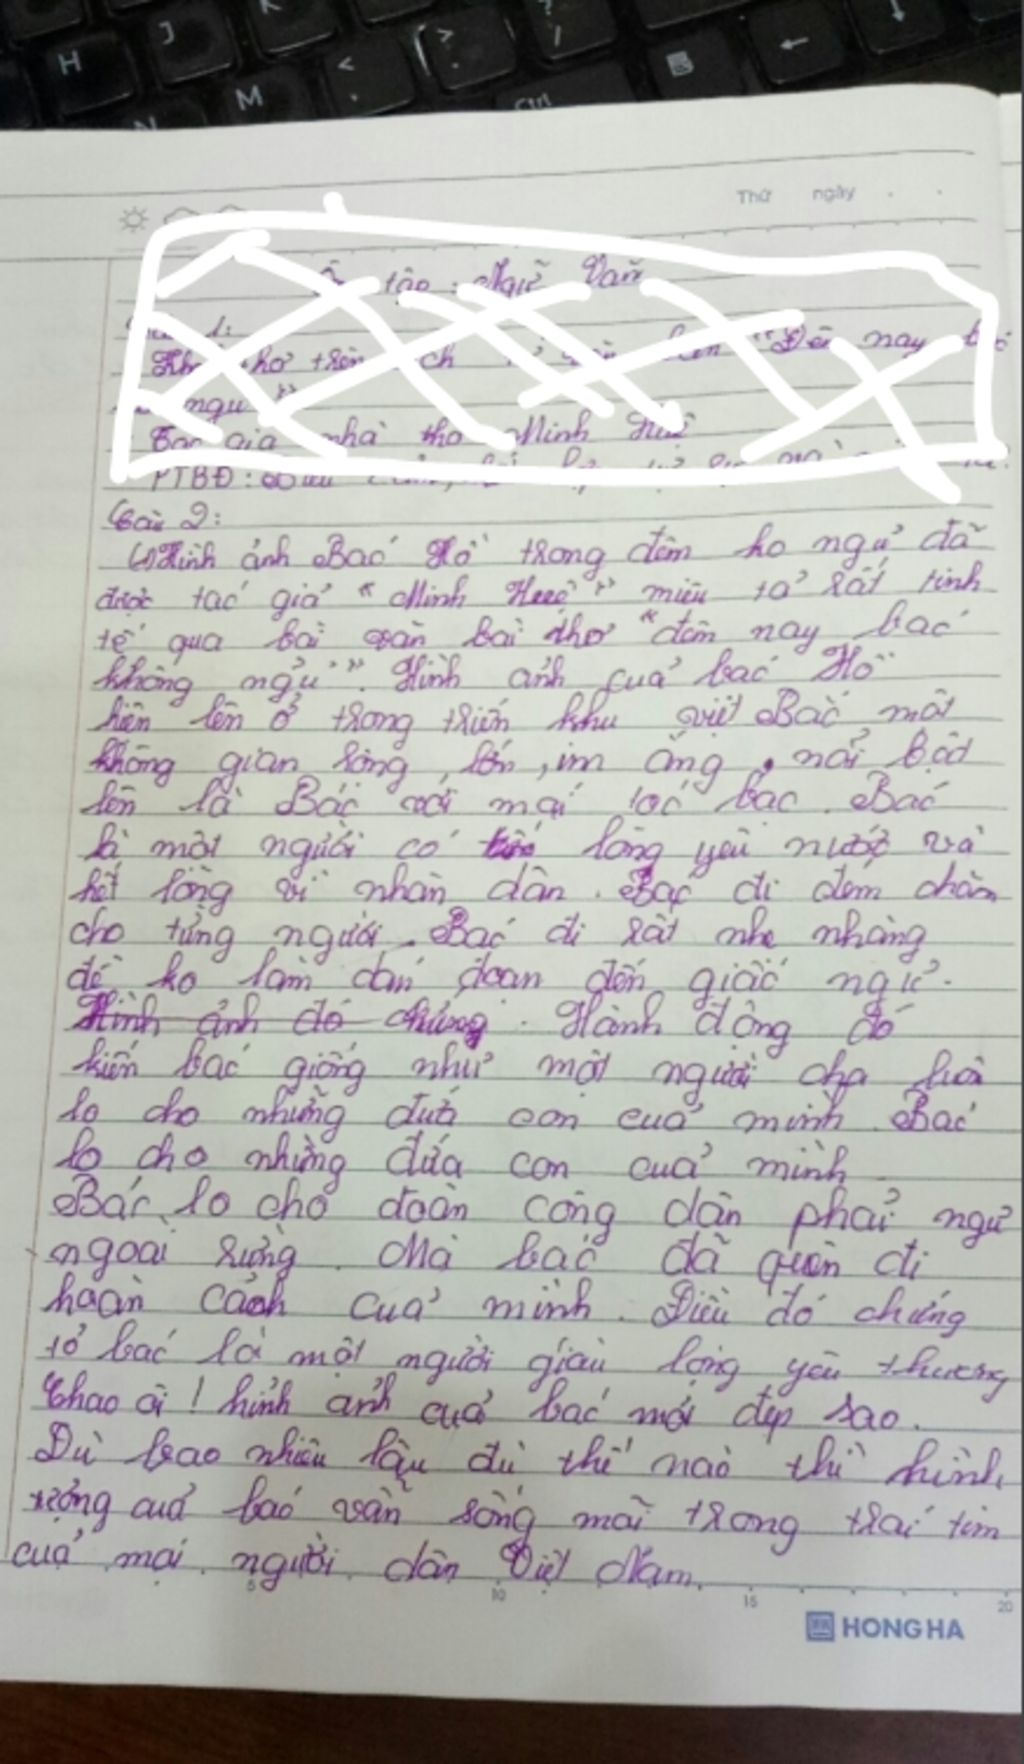 H
J
K
M
N
<
.
>
.
?
/
←
↓
Ctrl
Thứ ngày
Ôn tập: Ngữ Văn
thơ trên "Đêm nay bác
ngủ"
Tác giả nhà thơ Minh Huệ
PTBĐ:
Câu 2:
Hình ảnh Bác Hồ trong đêm ko ngủ đã
được tác giả "Minh Huệ" miêu tả rất tinh
tế qua bài văn bài thơ "đêm nay bác
không ngủ". Hình ảnh của bác Hồ
hiện lên ở trong triến khu việt Bắc một
không gian rộng, lớn, im ắng, nổi bật
lên là Bác với mái tóc bạc. Bác
là một người có lòng yêu nước và
hết lòng vì nhân dân. Bác đi đem chăn
cho từng người. Bác đi rất nhẹ nhàng
để ko làm dán đoạn đến giấc ngủ.
Hình ảnh đó chứng. Hành động đó
kiến bác giống như một người cha luôn
lo cho những đứa con của mình. Bác
lo cho những đứa con của mình
Bác lo cho đoàn công dân phải ngủ
ngoài rừng. Mà bác đã quên đi
hoàn cảnh của mình. Điều đó chứng
tỏ bác là một người giàu lòng yêu thương
Chao ôi! hình ảnh của bác mới đẹp sao.
Dù bao nhiêu lâu dù thế nào thì hình
tượng của bác vẫn sống mãi trong trái tim
của mọi người dân Việt Nam.
5 10 15 20
HONG HA